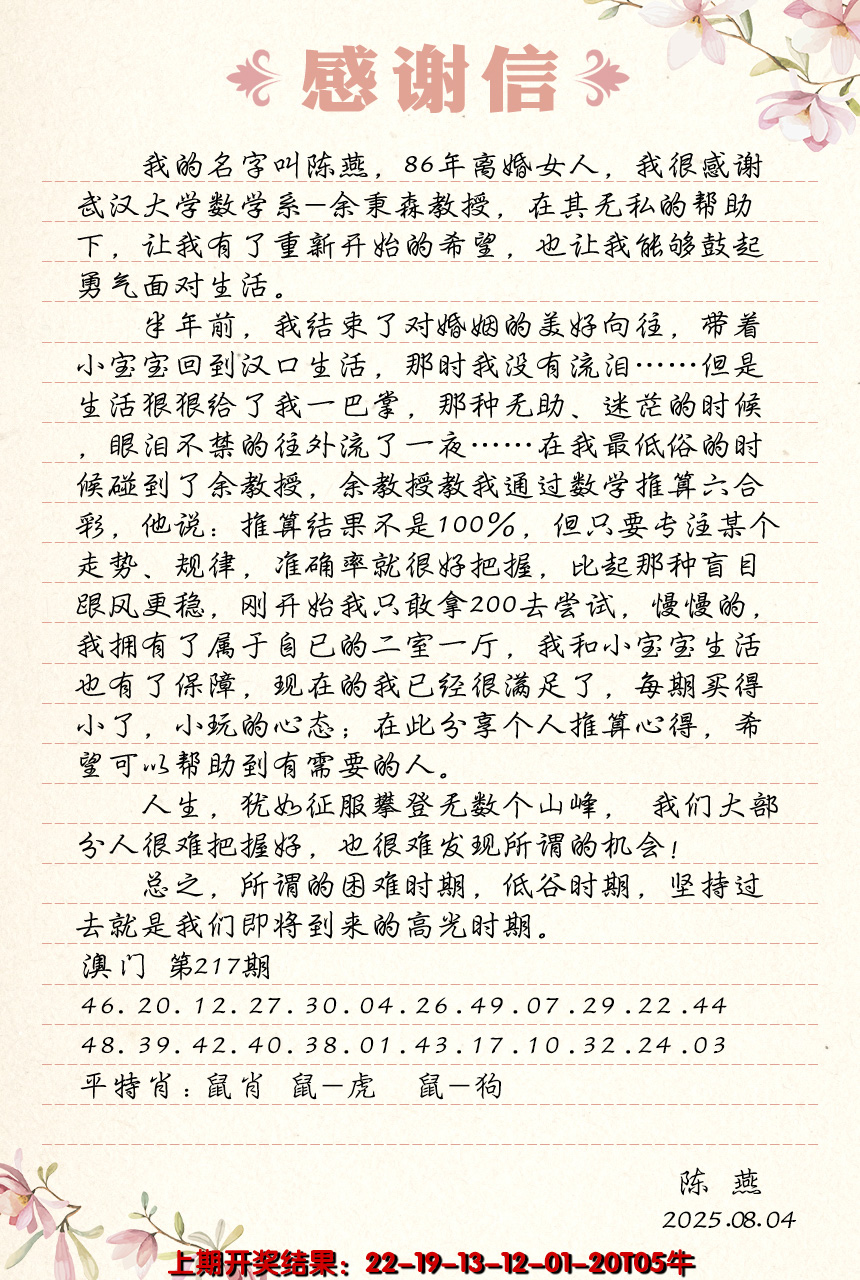 感谢信
我的名字叫陈燕，86年离婚女人，我很感谢
武汉大学数学系-余秉森教授，在其无私的帮助
下，让我有了重新开始的希望，也让我能够鼓起
勇气面对生活。
半年前，我结束了对婚姻的美好向往，带着
小宝宝回到汉口生活，那时我没有流泪……但是
生活狠狠给了我一巴掌，那种无助、迷茫的时候
，眼泪不禁的往外流了一夜……在我最低俗的时
候碰到了余教授，余教授教我通过数学推算六合
彩，他说：推算结果不是100%，但只要专注某个
走势、规律，准确率就很好把握，比起那种盲目
跟风更稳，刚开始我只敢拿200去尝试，慢慢的，
我拥有了属于自已的二室一厅，我和小宝宝生活
也有了保障，现在的我已经很满足了，每期买得
小了，小玩的心态；在此分享个人推算心得，希
望可以帮助到有需要的人。
人生，犹如征服攀登无数个山峰， 我们大部
分人很难把握好，也很难发现所谓的机会！
总之，所谓的困难时期，低谷时期，坚持过
去就是我们即将到来的高光时期。
澳门 第217期
46.20.12.27.30.04.26.49.07.29.22.44
48.39.42.40.38.01.43.17.10.32.24.03
平特肖：鼠肖 鼠-虎 鼠-狗
陈 燕
2025.08.04
上期开奖结果：22-19-13-12-01-20T05牛